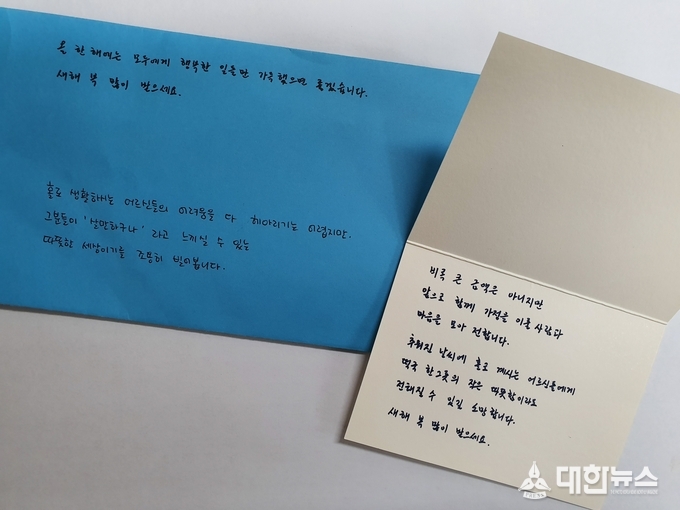 올 한해에는 모두에게 행복한 일들만 가득했으면 좋겠습니다.
새해 복 많이 받으세요.
홀로 생활하시는 어르신들의 어려움을 다 헤아리기는 어렵지만.
그분들이 '살만하구나' 라고 느끼실 수 있는
따뜻한 세상이기를 조용히 빌어봅니다.
비록 큰 금액은 아니지만
앞으로 함께 가정을 이룰 사람과
마음을 모아 전합니다.
추워진 날씨에 홀로 계시는 어르신들에게
떡국 한그릇의 작은 따뜻함이라도
전해질 수 있길 소망합니다.
새해 복 많이 받으세요.
대한뉴스